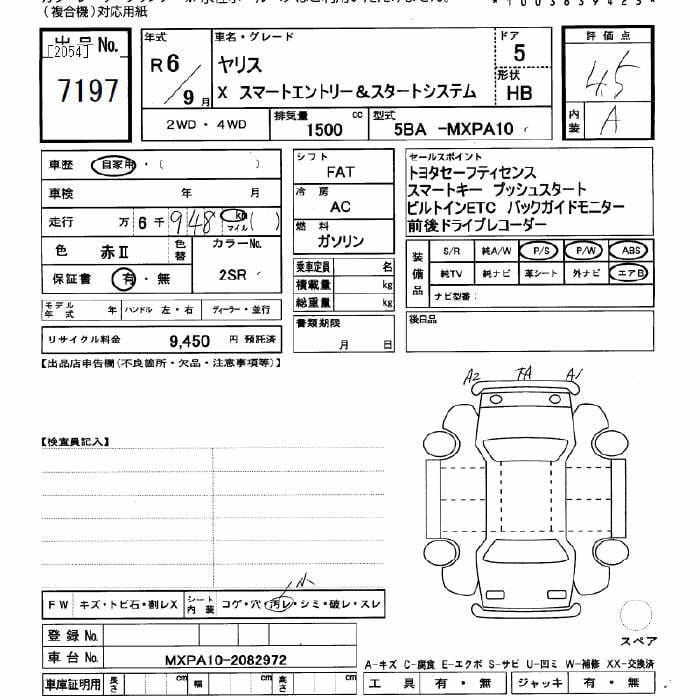 (複合機)対応用紙
*1003839425*
出品No.
[2054]
7197
年式
R 6
／9 月
車名・グレード
ヤリス
X スマートエントリー＆スタートシステム
ドア
5
形状
HB
2WD・4WD
排気量
1500 cc
型式
5BA -MXPA10
評価点
4.5
内装
A
車歴
自家用・( )
車検 年 月
走行 万 6 千 948 km マイル ( )
色 赤Ⅱ
色替
カラーNo.
2SR
保証書 有・無
モデル年式 年 ハンドル 左・右 ディーラー・並行
リサイクル料金 9,450 円 預託済
シフト
FAT
冷房
AC
燃料
ガソリン
乗車定員 名
積載量 kg
総重量 kg
書類期限
月 日
セールスポイント
トヨタセーフティセンス
スマートキー プッシュスタート
ビルトインETC バックガイドモニター
前後ドライブレコーダー
装備品
S/R 純A/W P/S P/W ABS
純TV 純ナビ 革シート 外ナビ エアB
ナビ型番：
後日品
【出品店申告欄(不良箇所・欠品・注意事項等)】
A2 TA A1
【検査員記入】
小
FW キズ・トビ石・割レX
シート内装 コゲ・穴・汚レ・シミ・破レ・スレ
登録No.
車台No. MXPA10-2082972
車庫証明用 長さ cm 幅 cm 高さ cm
スペア
A-キズ C-腐食 E-エクボ S-サビ U-凹ミ W-補修 XX-交換済
工具 有・無 ジャッキ 有・無